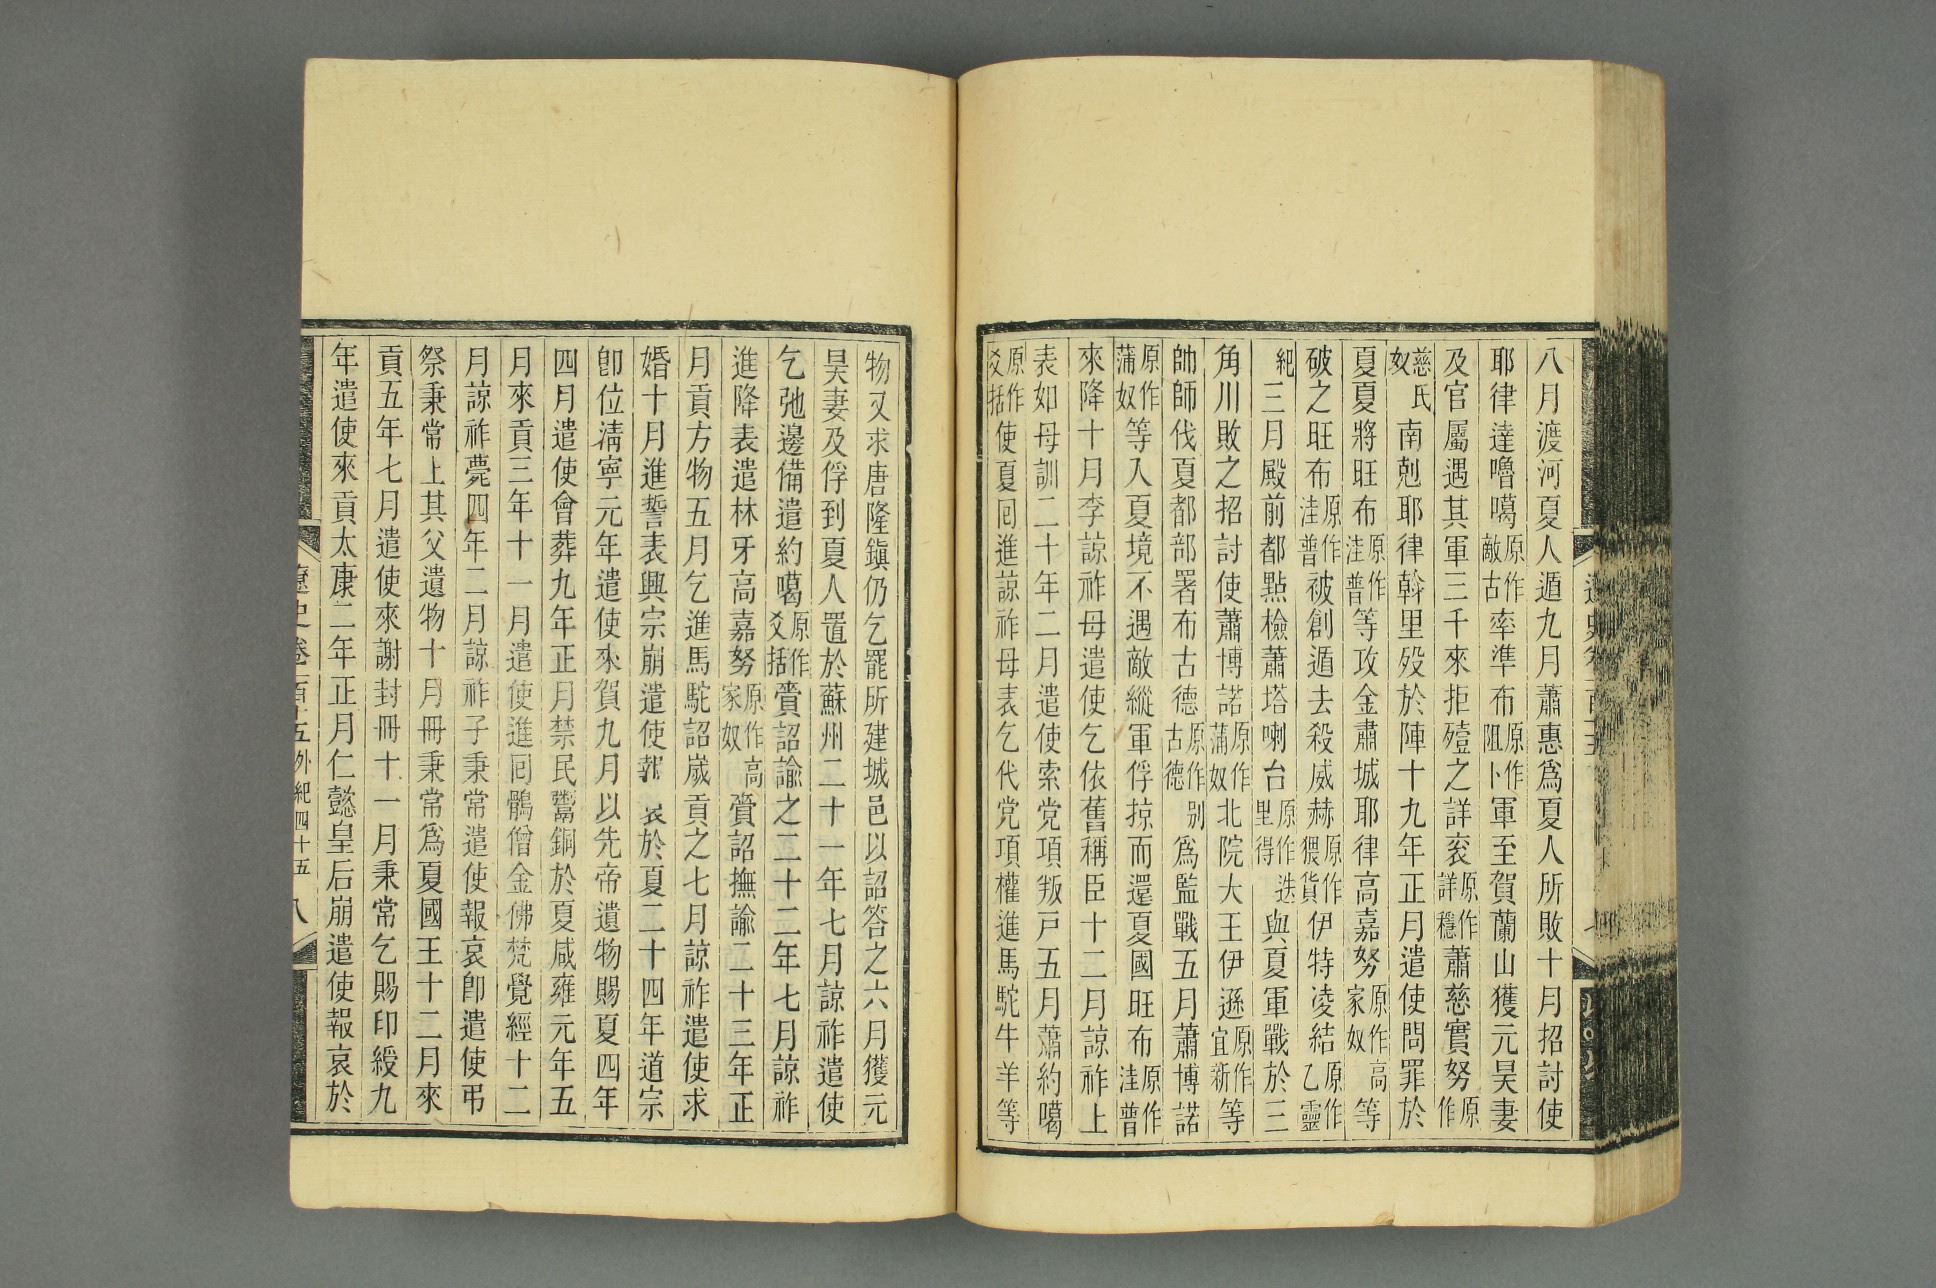 八月渡河夏人遁九月蕭惠爲夏人所敗十月招討使
耶律達嚕噶原作敵古率準布原作阻卜軍至賀蘭山獲元昊妻
及官屬遇其軍三千來拒殪之詳衮原作詳穩蕭慈實努原作
慈氏奴南剋耶律斡里殁於陣十九年正月遣使問罪於
夏夏將旺布原作洼普等攻金肅城耶律高嘉努原作高家奴等
破之旺布原作洼普被創遁去殺威赫原作猥貨伊特凌結原作乙靈
紀三月殿前都點檢蕭塔喇台原作迭里得與夏軍戰於三
角川敗之招討使蕭博諾原作蒲奴北院大王伊遜原作宜新等
帥師伐夏都部署布古德原作别古德爲監戰五月蕭博諾
原作蒲奴等入夏境不遇敵縱軍俘掠而還夏國旺布原作洼普
來降十月李諒祚母遣使乞依舊稱臣十二月諒祚上
表如母訓二十年二月遣使索党項叛戸五月蕭約噶
原作爻括使夏囘進諒祚母表乞代党項權進馬駝牛羊等
物又求唐隆鎭仍乞罷所建城邑以詔答之六月獲元
昊妻及俘到夏人置於蘇州二十一年七月諒祚遣使
乞弛邊備遣約噶原作爻括賫詔諭之二十二年七月諒祚
進降表遣林牙高嘉努原作高家奴賫詔撫諭二十三年正
月貢方物五月乞進馬駝詔歲貢之七月諒祚遣使求
婚十月進誓表興宗崩遣使報哀於夏二十四年道宗
卽位淸寧元年遣使來賀九月以先帝遺物賜夏四年
四月遣使會葬九年正月禁民鬻銅於夏咸雍元年五
月來貢三年十一月遣使進囘鶻僧金佛梵覺經十二
月諒祚薨四年二月諒祚子秉常遣使報哀卽遣使弔
祭秉常上其父遺物十月冊秉常爲夏國王十二月來
貢五年七月遣使來謝封冊十一月秉常乞賜印綬九
年遣使來貢太康二年正月仁懿皇后崩遣使報哀於
遼史卷一百十五外紀四十五 八